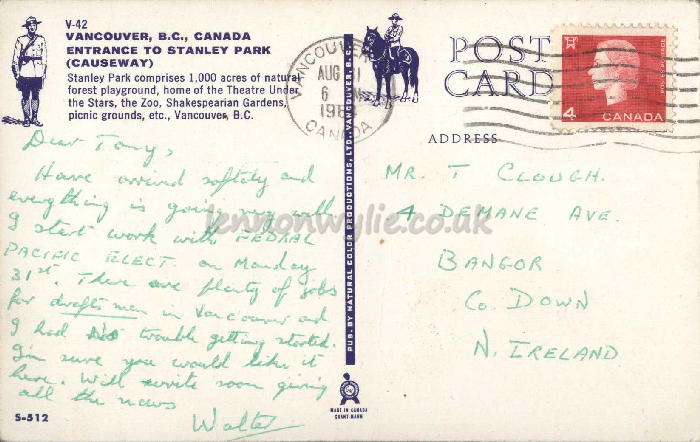 V-42
VANCOUVER, B.C., CANADA
ENTRANCE TO STANLEY PARK
(CAUSEWAY)
Stanley Park comprises 1,000 acres of natural
forest playground, home of the Theatre Under
the Stars, the Zoo, Shakespearian Gardens,
picnic grounds, etc., Vancouver, B.C.
Dear Tony,
Have arrived saftely and
everything is going very well
I start work with FEDRAL
PACIFIC ELECT on Monday
31st. There are plenty of jobs
for draftsmen in Vancouver and
I had No trouble getting started.
I'm sure you would like it
here. Will write soon giving
all the news
Walter
S-512
PUB. BY NATURAL COLOR PRODUCTIONS, LTD., VANCOUVER, B.C.
MADE IN CANADA
GRANT-MANN
VANCOUVER
AUG
6
CANADA
POST
CARD
4
CANADA
ADDRESS
MR. T CLOUGH.
4 DEMANE AVE.
BANGOR
Co. DOWN
N. IRELAND
lennonwylie.co.uk